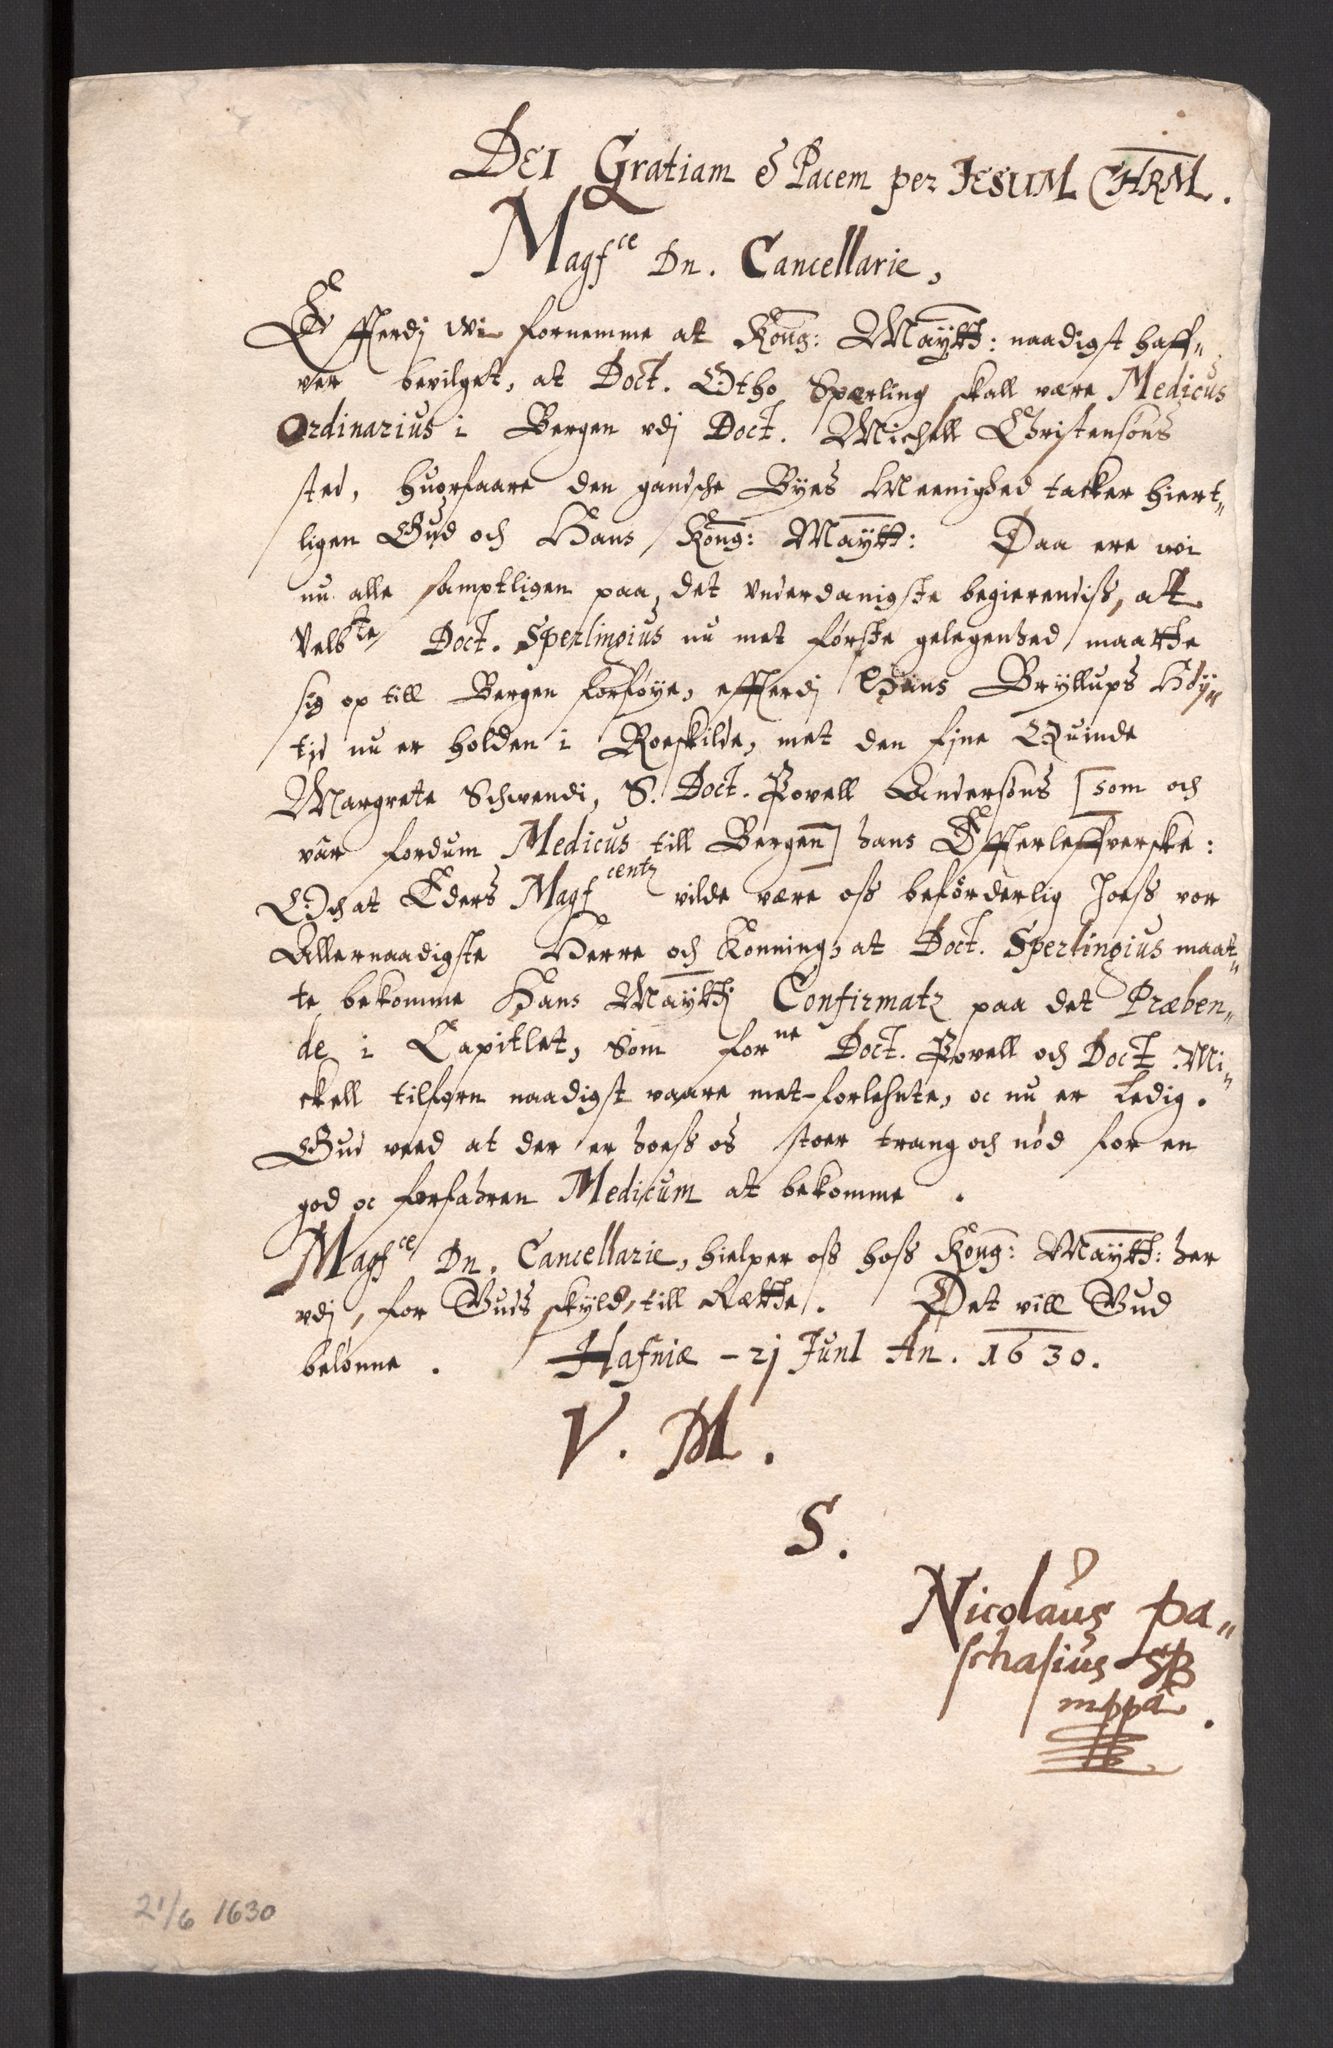 DEI Gratiam & Pacem per JESUM CHRM.
Magf^ce Dn. Cancellarie,
Efferdj wi fornemme at Kong: Maÿtt: naadigst haff-
ver bevilget, at Doct. Otho Sperling skall være Medicus
Ordinarius i Bergen vdj Doct. Michell Christensøns
sted, huorfaare den gandsche Byes Meenighed tacker hiert-
ligen Gud och Hans Kong: Maÿtt: Daa ere wi
nu alle samptligen paa det vnderdanigste begierendiß, at
Velb^te Doct. Sperlingius nu met første gelegenhed maatte
sig op till Bergen forføye, efferdj Hans Bryllups Høy-
tjd nu er holden i Roeskilde, met den fjne Quinde
Margrete Schwendi, S. Doct. Povell Andersøns [som och
vår fordum Medicus till Bergen] hans Efferleffverske:
Och at Eders Magf^centz vilde være oß beförderlig hoeß vor
Allernaadigste Herre och Konning, at Doct. Sperlingius maat-
te bekomme Hans Maÿttj Confirmatz paa det Præben-
de i Capitlet, som for^ne Doct. Povell och Doct Mi-
ckell tilforn naadigst vaare met forlehnte, oc nu er Ledig.
Gud veed at der er hoeß os stoer trang och nöd for en
god oc forfahren Medicum at bekomme.
Magf^ce Dn. Cancellarie, hielper oß hoß Kong: Maÿtt: her
vdj, for Guds skyld, till Rette. Det vill Gud
belönne. Hafniæ - 21 JunI An. 1630.
V. M.
S.
Nicolaus Pa-
schasius SB
mppa.
21/6 1630